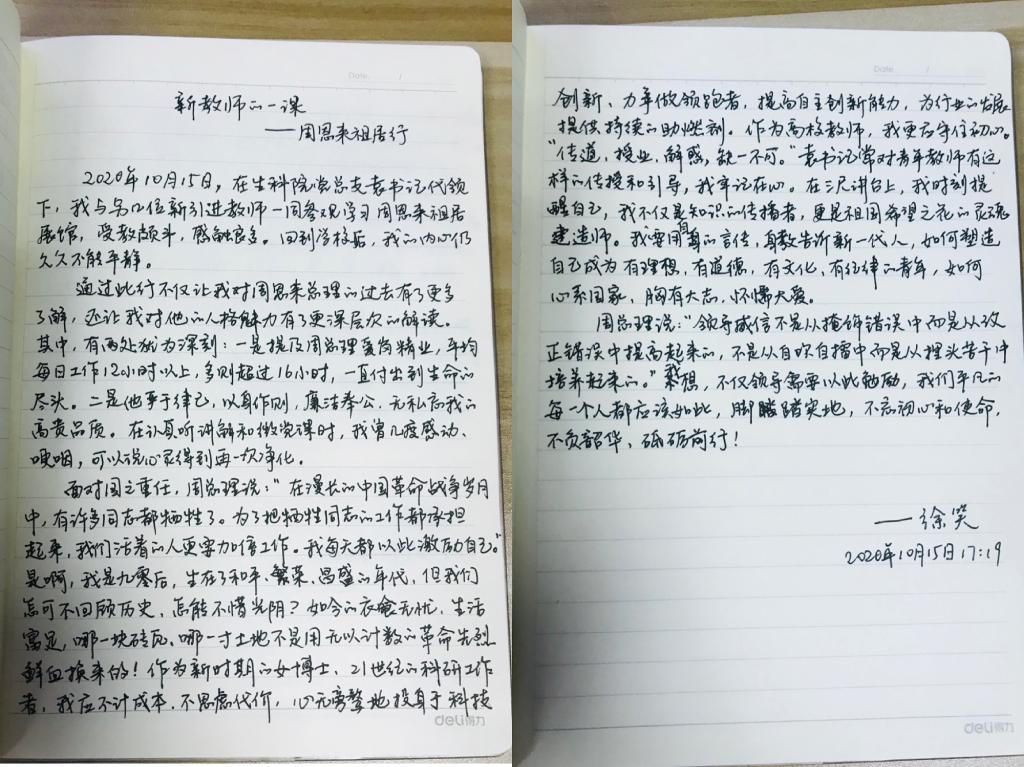 Date. /
新教师的一课
——周恩来祖居行
2020年10月15日，在生科院党总支袁书记代领
下，我与另几位新引进教师一同参观学习周恩来祖居
展馆，受教颇丰，感触良多。回到学校后，我的内心仍
久久不能平静。
通过此行不仅让我对周恩来总理的过去有了更多
了解，还让我对他的人格魅力有了更深层次的解读。
其中，有两处犹为深刻：一是提及周总理爱岗精业，平均
每日工作12小时以上，多则超过16小时，一直付出到生命的
尽头。二是他严于律己，以身作则，廉洁奉公，无私忘我的
高贵品质。在认真听讲解和微党课时，我曾几度感动、
哽咽，可以说心灵得到再一次净化。
面对国之重任，周总理说：“在漫长的中国革命战争岁月
中，有许多同志都牺牲了。为了把牺牲同志的工作都承担
起来，我们活着的人更要加倍工作。我每天都以此激励自己。”
是啊，我是九零后，生在了和平、繁荣、昌盛的年代，但我们
怎可不回顾历史，怎能不惜光阴？如今的衣食无忧，生活
富足，哪一块砖瓦、哪一寸土地不是用无以计数的革命先烈
鲜血换来的！作为新时期的女博士、21世纪的科研工作
者，我应不计成本，不思虑代价，心无旁骛地投身于科技
deli得力
Date. /
创新、力争做领跑者，提高自主创新能力，为行业的发展
提供持续的助燃剂。作为高校教师，我更应守住初心。
“传道，授业，解惑，缺一不可。”袁书记常对青年教师有这
样的传授和引导，我牢记在心。在三尺讲台上，我时刻提
醒自己，我不仅是知识的传播者，更是祖国希望之花的灵魂
建造师。我要用自身的言传，身教告诉新一代人，如何塑造
自己成为有理想，有道德，有文化，有纪律的青年，如何
心系国家、胸有大志，怀揣大爱。
周总理说：“领导威信不是从掩饰错误中而是从改
正错误中提高起来的，不是从自吹自擂中而是从埋头苦干中
培养起来的。”我想，不仅领导需要以此勉励，我们平凡的
每一个人都应该如此，脚踏实地，不忘初心和使命，
不负韶华、砥砺前行！
——徐笑
2020年10月15日17:19
deli得力